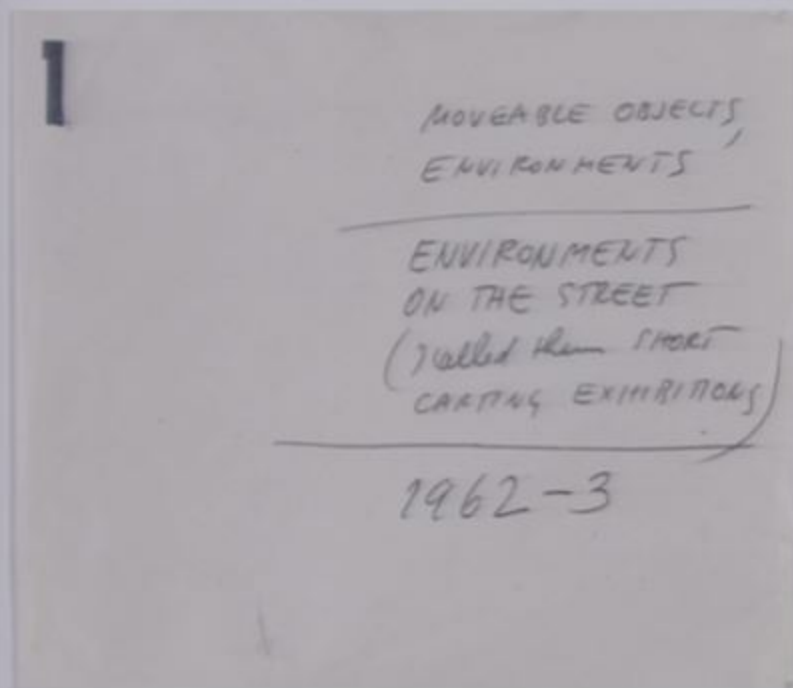 1
MOVEABLE OBJECTS,
ENVIRONMENTS
ENVIRONMENTS
ON THE STREET
(I called them SHORT
CARTING EXHIBITIONS)
1962-3